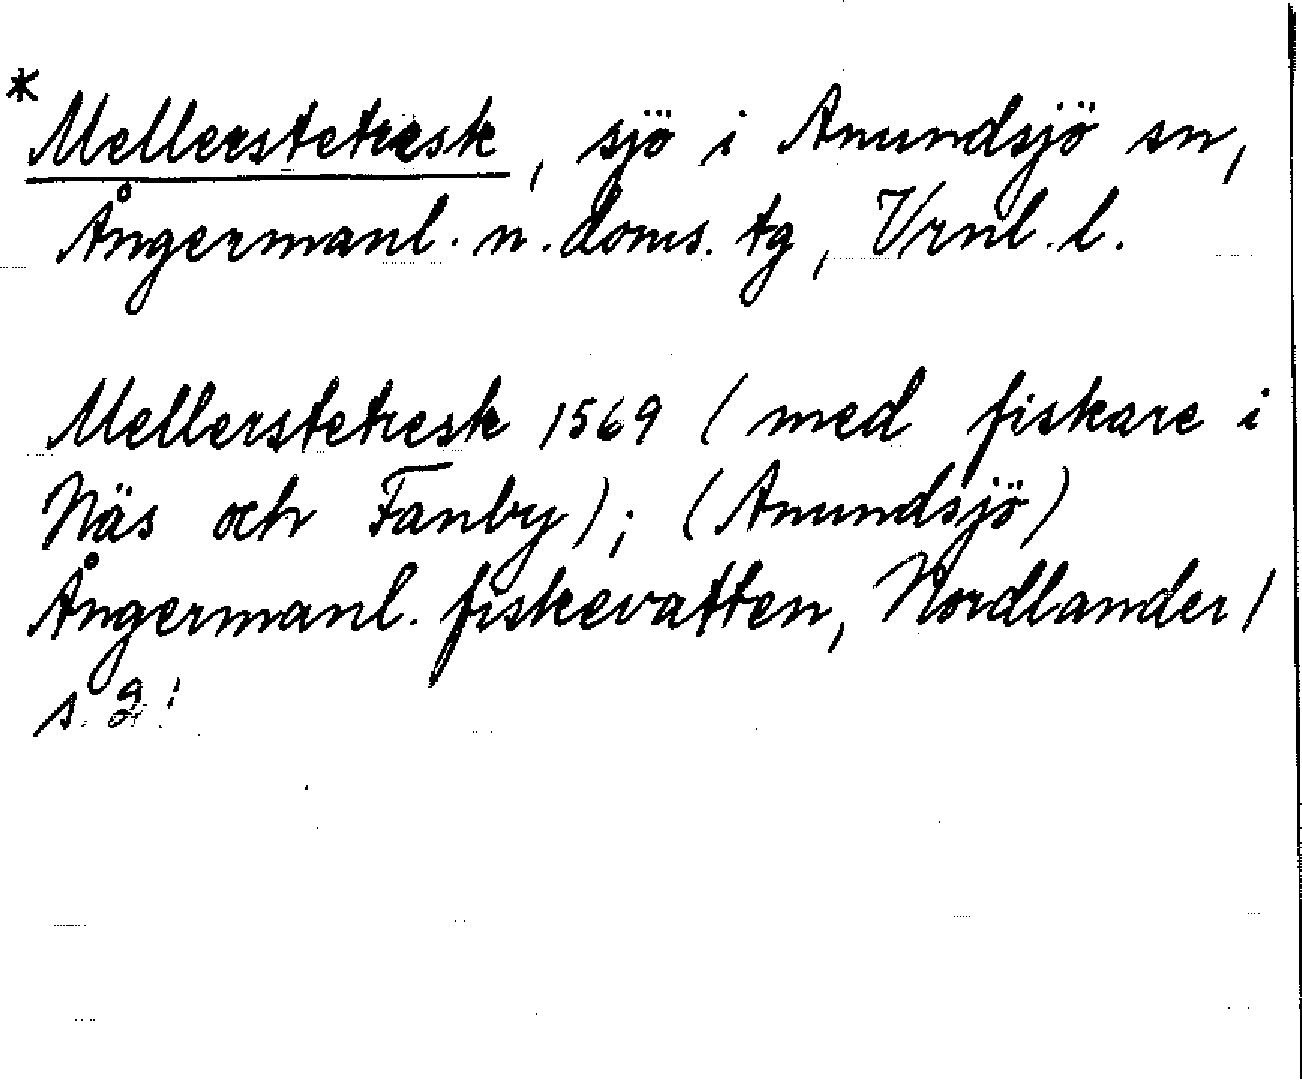 * Mellerstetresk, sjö i Anundsjö sn,
Ångermanl. n. doms. tg, Vrnl. l.
Mellerstetresk 1569 (med fiskare i
Näs och Fanby); (Anundsjö)
Ångermanl. fiskevatten, Nordlander /
s. 2!